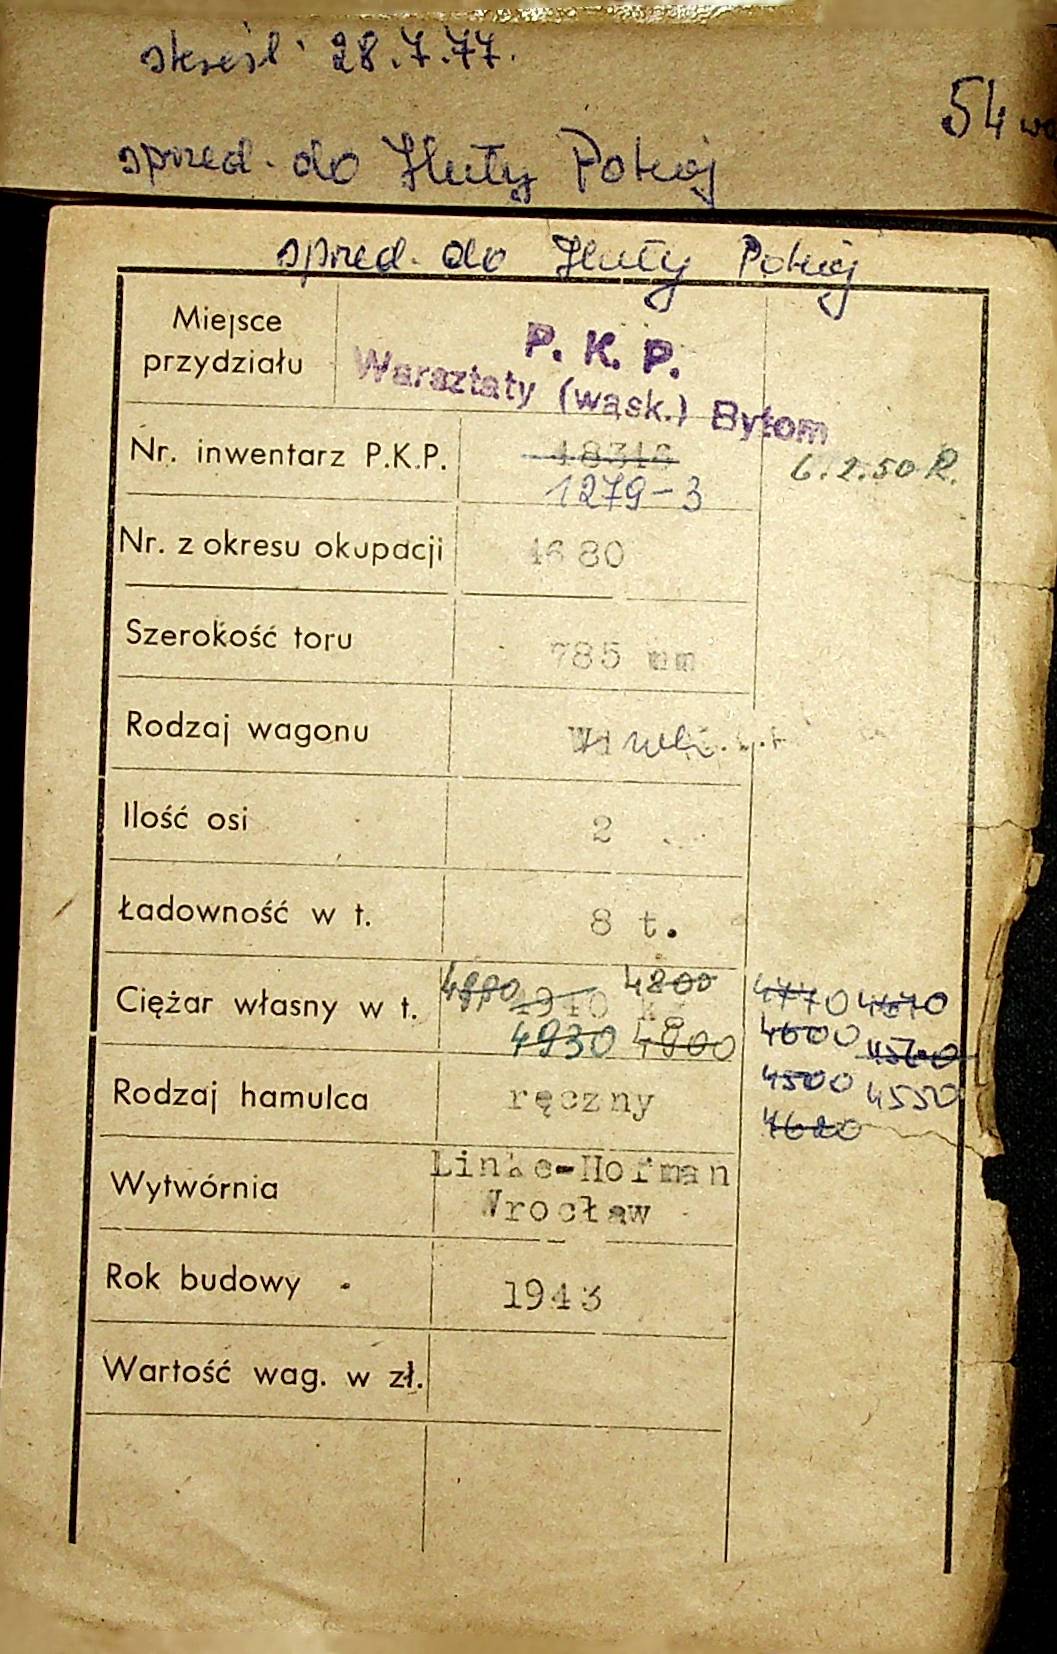 skreśl. 28.7.77.
54
sprzed. do Huty Pokój
sprzed. do Huty Pokój
Miejsce przydziału
P. K. P.
Warsztaty (wąsk.) Bytom
Nr. inwentarz P.K.P. 18316 6.2.50 R.
1279-3
Nr. z okresu okupacji 4680
Szerokość toru 785 mm
Rodzaj wagonu
Ilość osi 2
Ładowność w t. 8 t.
4800 4770 4670
Ciężar własny w t. 4940 kg 4600
4930 4900 4500 4550
4620
Rodzaj hamulca ręczny
Wytwórnia Linke-Hofman
Wrocław
Rok budowy 1943
Wartość wag. w zł.